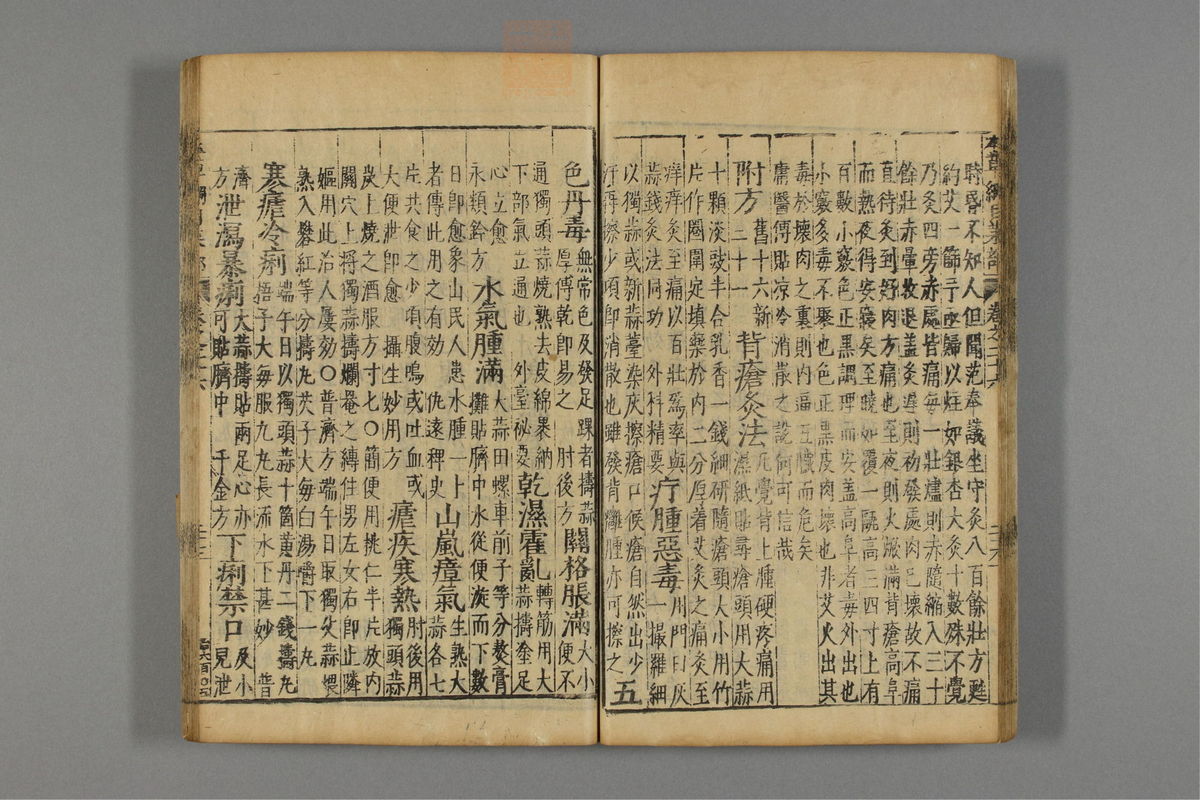 時昏不知人但聞范奉議坐守灸八百餘壯方甦
約艾一篩亍亟歸以炷如銀杏大灸十數殊不覺
乃灸四旁赤處皆痛每一壯爐則赤隨縮入三十
餘壯赤暈收退盖灸遲則初發處肉已壞故不痛
直待灸到好肉方痛也至夜則火焮滿背瘡高阜
而熱夜得安寢矣至曉如覆一甌高三四寸上有
百數小竅色正黑調理而安盖高阜者毒外出也
小竅多毒不聚也色正黑皮肉壞也非艾火出其
毒於壞肉之裏則内逼五臟而危矣
庸醫傳貼凉冷消散之說何可信哉
附方舊十六新二十一背瘡灸法凡覺背上腫硬疼痛用濕紙貼尋瘡頭用大蒜
十顆淡豉半合乳香一錢細研隨瘡頭大小用竹
片作圈圍定填藥於内二分厚着艾灸之痛灸至
痒痒灸至痛以百壯爲率與蒜錢灸法同功外科精要疔腫惡毒用門臼灰一撮羅細
以獨蒜或新蒜薹染灰擦瘡口候瘡自然出少
汗再擦少頃即消散也雖發背癰腫亦可擦之五
色丹毒無常色及發足踝者擣蒜厚傅乾即易之肘後方關格脹滿大小便不
通獨頭蒜燒熟去皮綿裹納下部氣立通也外臺祕要乾濕霍亂轉筋用大蒜擣塗足
心立愈永類鈐方水氣腫滿大蒜田螺車前子等分熬膏攤貼臍中水從便漩而下數
日即愈象山民人患水腫一卜者傳此用之有効仇遠稗史山嵐瘴氣生熟大蒜各七
片共食之少頃腹鳴或吐血或大便泄即愈攝生妙用方瘧疾寒熱肘後用獨頭蒜
炭上燒之酒服方寸七〇簡便用桃仁半片放内
關穴上将獨蒜擣爛罨之縛住男左女右即止隣
嫗用此治人屢効〇普濟方端午日取獨父蒜煨
熟入礬紅等分擣丸芡子大每白湯嚼下一丸
寒瘧冷痢端午日以獨頭蒜十箇黄丹二錢擣丸梧子大每服九丸長流水下甚妙普
濟方泄瀉暴痢大蒜擣貼兩足心亦可貼臍中千金方下痢禁口及小兒泄